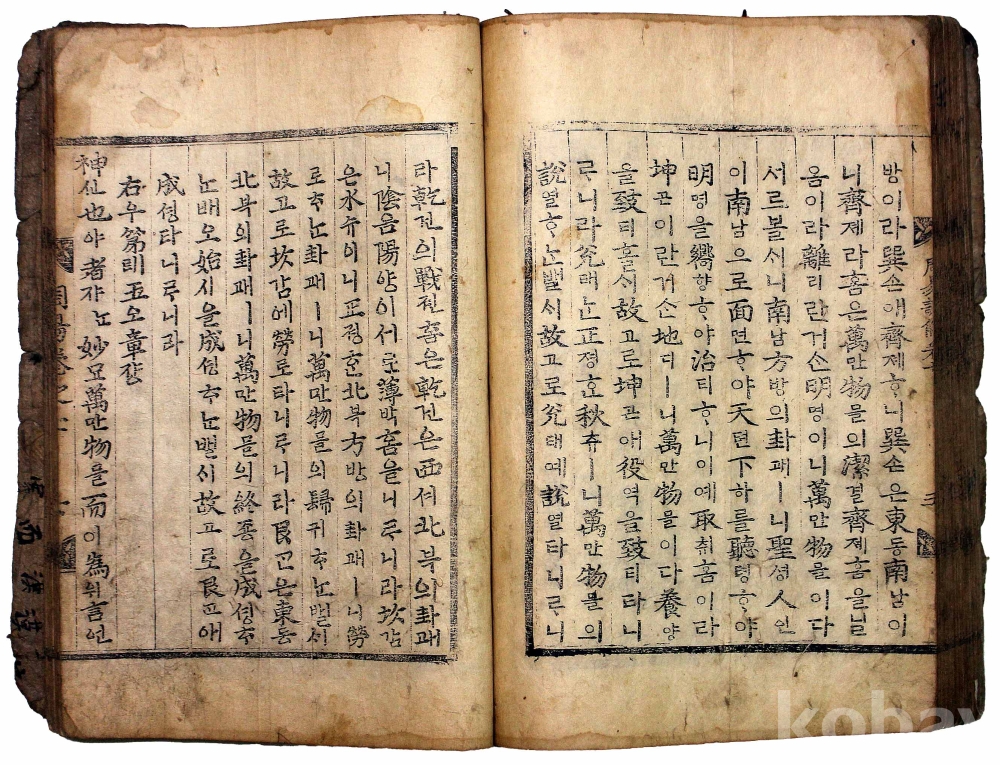 방이라巽손애齊졔ᄒᆞ니巽손은東동南남이
니齊졔라홈은萬만物믈의潔결齊졔홈을닐
옴이라離리란거ᄉᆞᆫ明명이니萬만物믈이다
서르볼시니南남方방의卦괘ㅣ니聖셩人인
이南남으로面면ᄒᆞ야天텬下하를聽텽ᄒᆞ야
明명을嚮향ᄒᆞ야治티ᄒᆞ니이예取취홈이라
坤곤이란거ᄉᆞᆫ地디ㅣ니萬만物믈이다養양
을致티홀ᄉᆡ故고로坤곤애役역을致티타니
ᄅᆞ니라兌태ᄂᆞᆫ正졍ᄒᆞᆫ秋츄ㅣ니萬만物믈의
說열ᄒᆞᄂᆞᆫ밸ᄉᆡ故고로兌태예說열타니ᄅᆞ니
라乾건의戰젼홈은乾건은西셔北북의卦괘
니陰음陽양이서ᄅᆞ薄박홈을니ᄅᆞ니라坎감
은水슈이니正졍ᄒᆞᆫ北북方방의卦괘ㅣ니勞
로ᄒᆞᄂᆞᆫ卦괘ㅣ니萬만物믈의歸귀ᄒᆞᄂᆞᆫ밸ᄉᆡ
故고로坎감에勞로타니ᄅᆞ니라艮간은東동
北북의卦괘ㅣ니萬만物믈의終죵을成셩ᄒᆞ
ᄂᆞᆫ배오始시을成셩ᄒᆞᄂᆞᆫ밸ᄉᆡ故고로艮간애
成셩타니ᄅᆞ니라
右우第뎨五오章쟝
神신也야者쟈ᄂᆞᆫ妙묘萬만物믈而이爲위言언
周易卷之
kobay